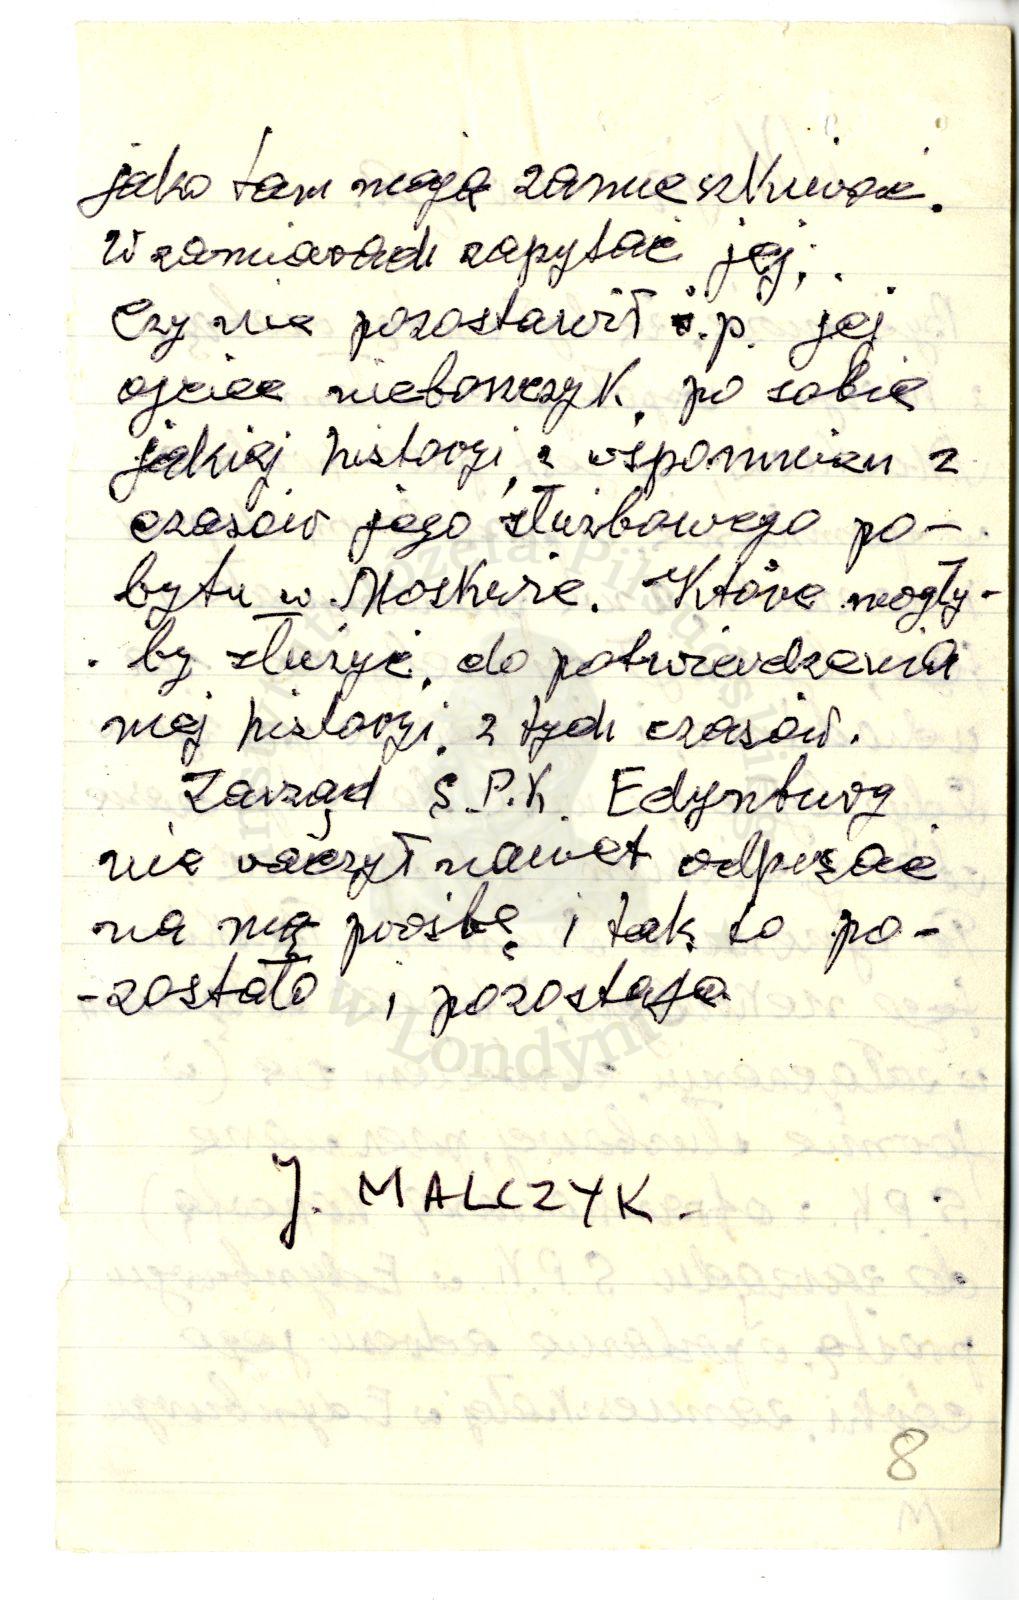 jako tam mają zamieszkiwać.
W zamiarach zapytać jej,
Czy nie pozostawił ś.p. jej
ojciec nieboszczyk, po sobie
jakiej historyi, z wspomnień z
czasów jego służbowego po-
bytu w Moskwie. Które mogły-
by służyć, do potwierdzenia
mej historyi, z tych czasów.
Zarząd S.P.K. Edynburg
nie raczył nawet odpisać
na mą prośbę, i tak to po-
-zostało i pozostaje
J. MALCZYK.-
8
Instytut Józefa Piłsudskiego
w Londynie